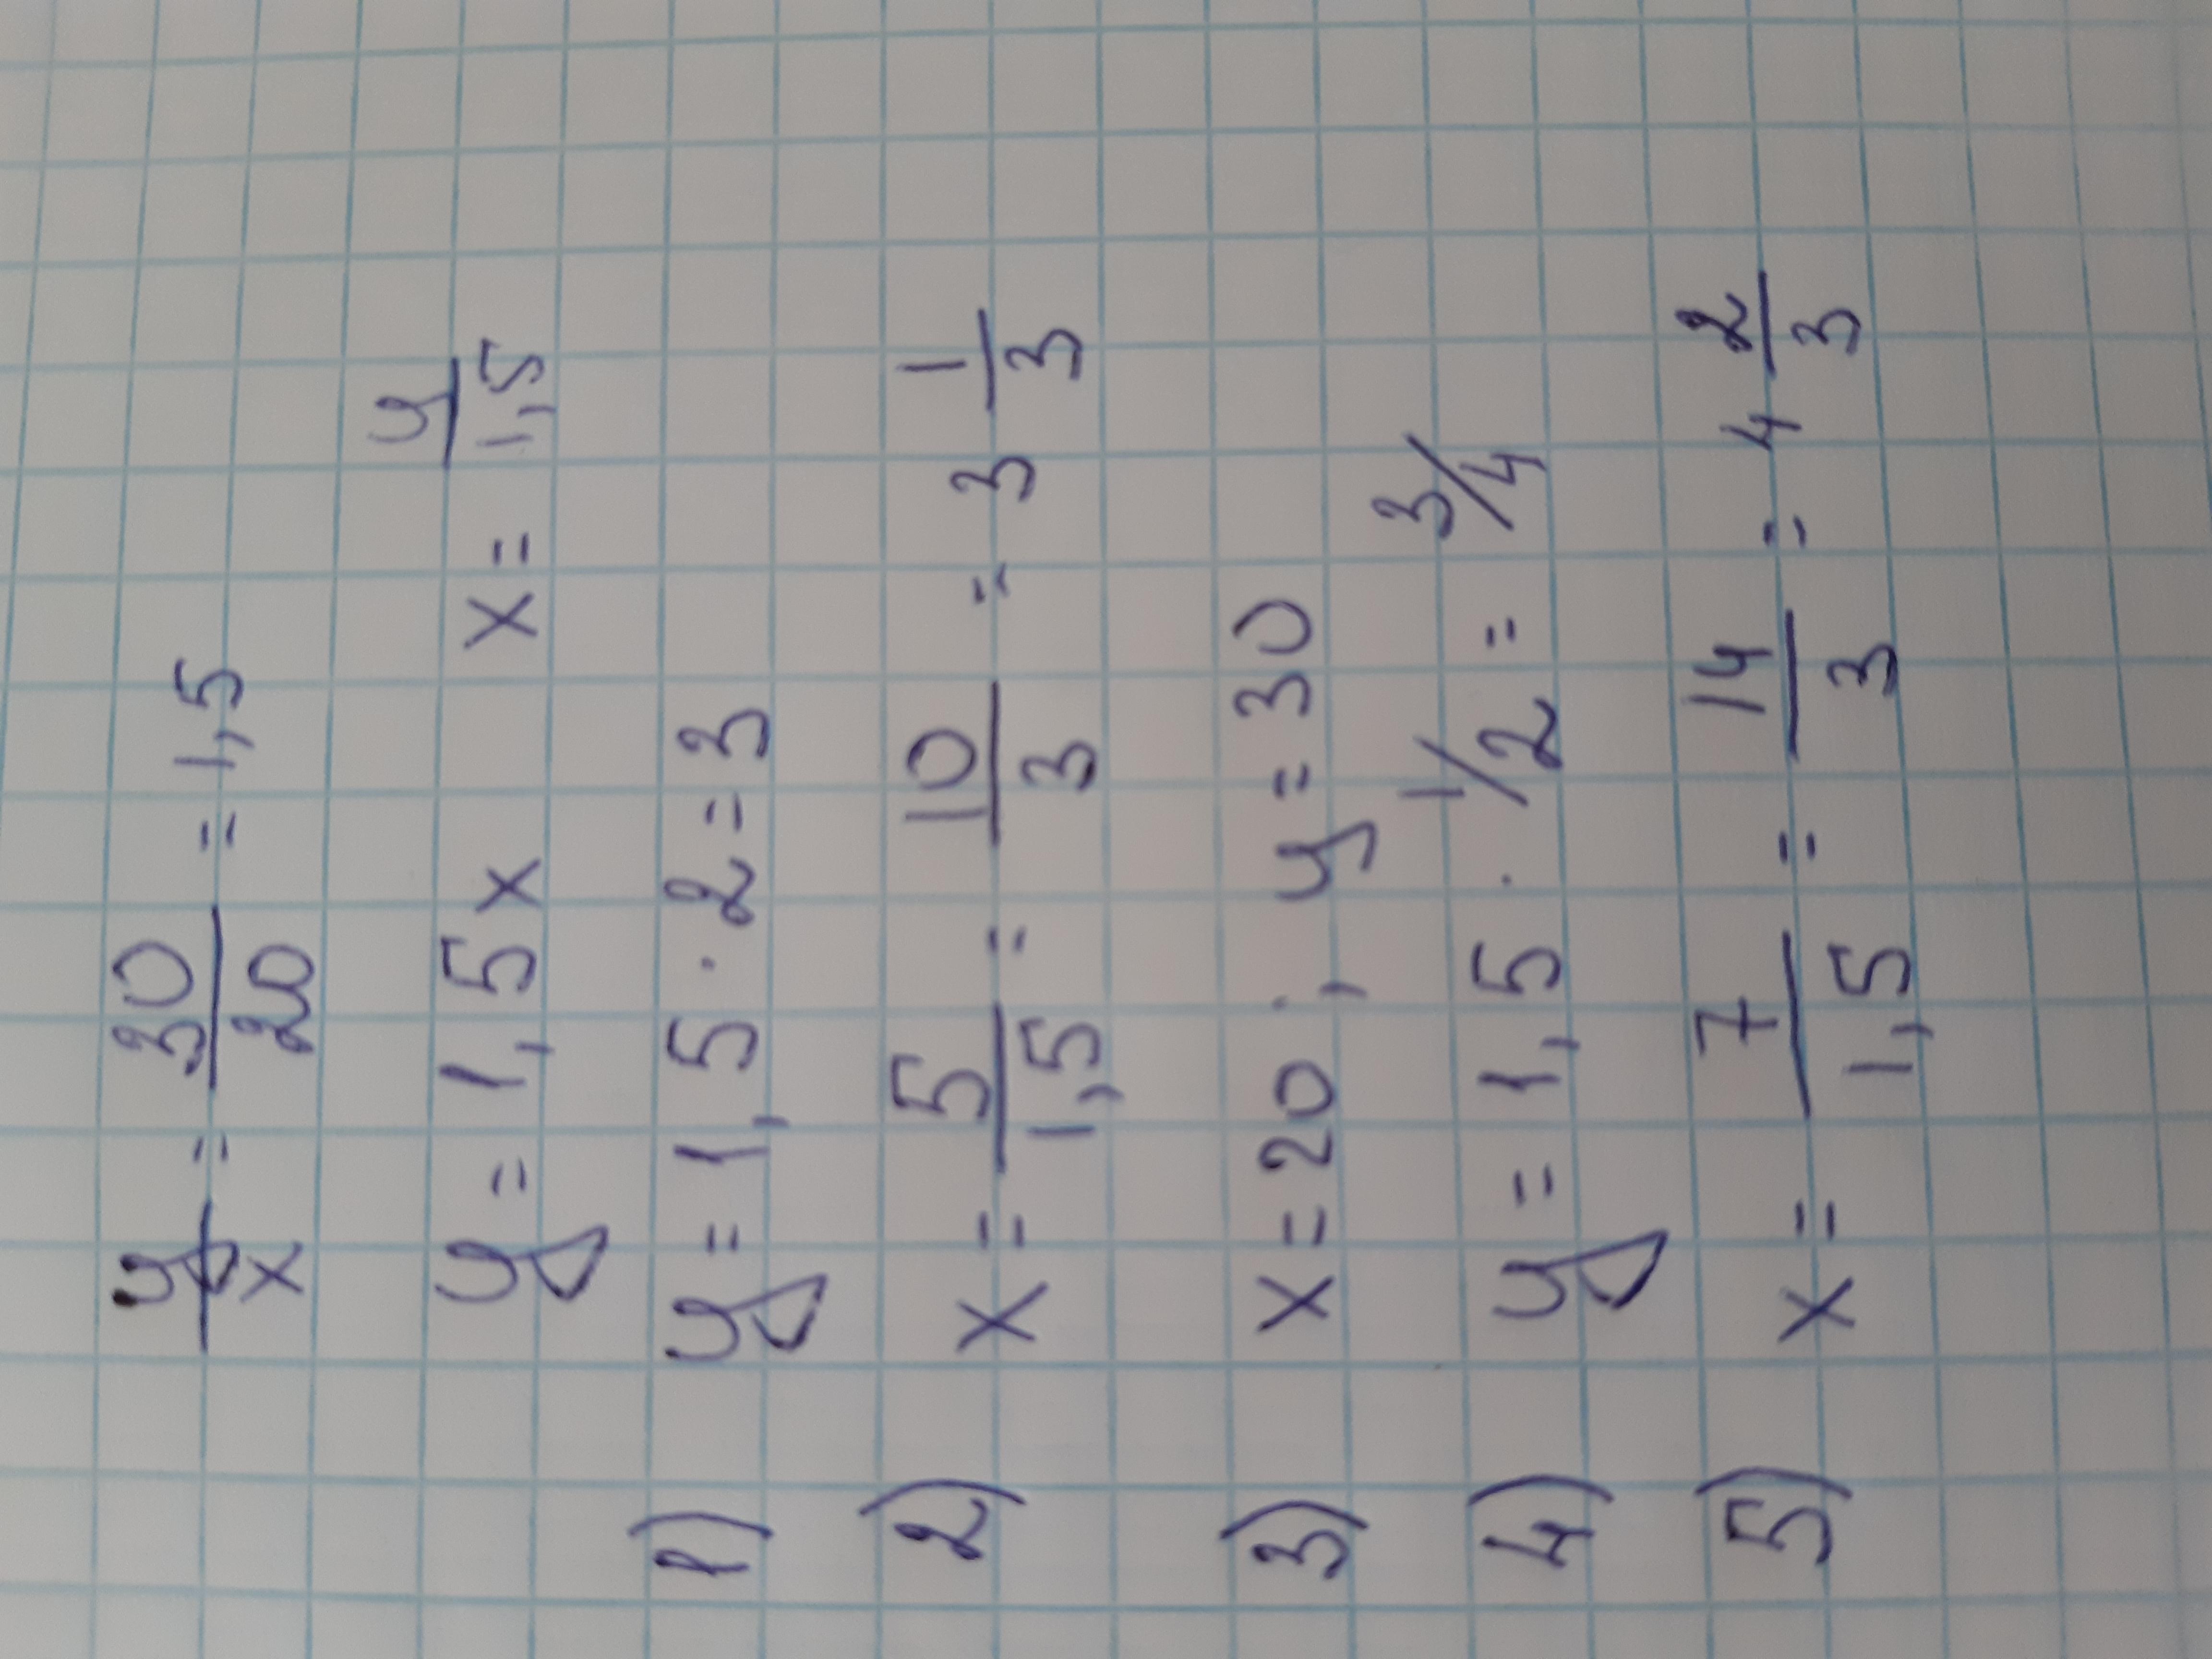 y/x = 30/20 = 1,5
y = 1,5x x = y/1,5
1) y = 1,5 · 2 = 3
2) x = 5/1,5 = 10/3 = 3 1/3
3) x = 20 ; y = 30
4) y = 1,5 · 1/2 = 3/4
5) x = 7/1,5 = 14/3 = 4 2/3